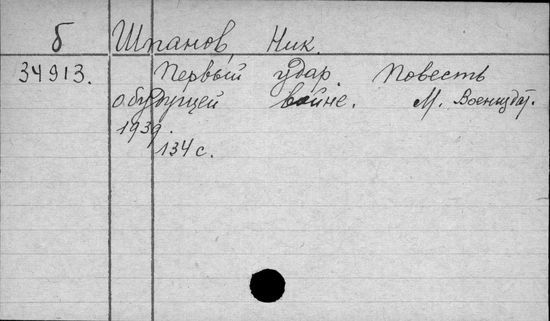 б Шпанов, Ник.
34913. Первый удар. Повесть
о будущей войне. М. Воениздат.
1939.
134 с.